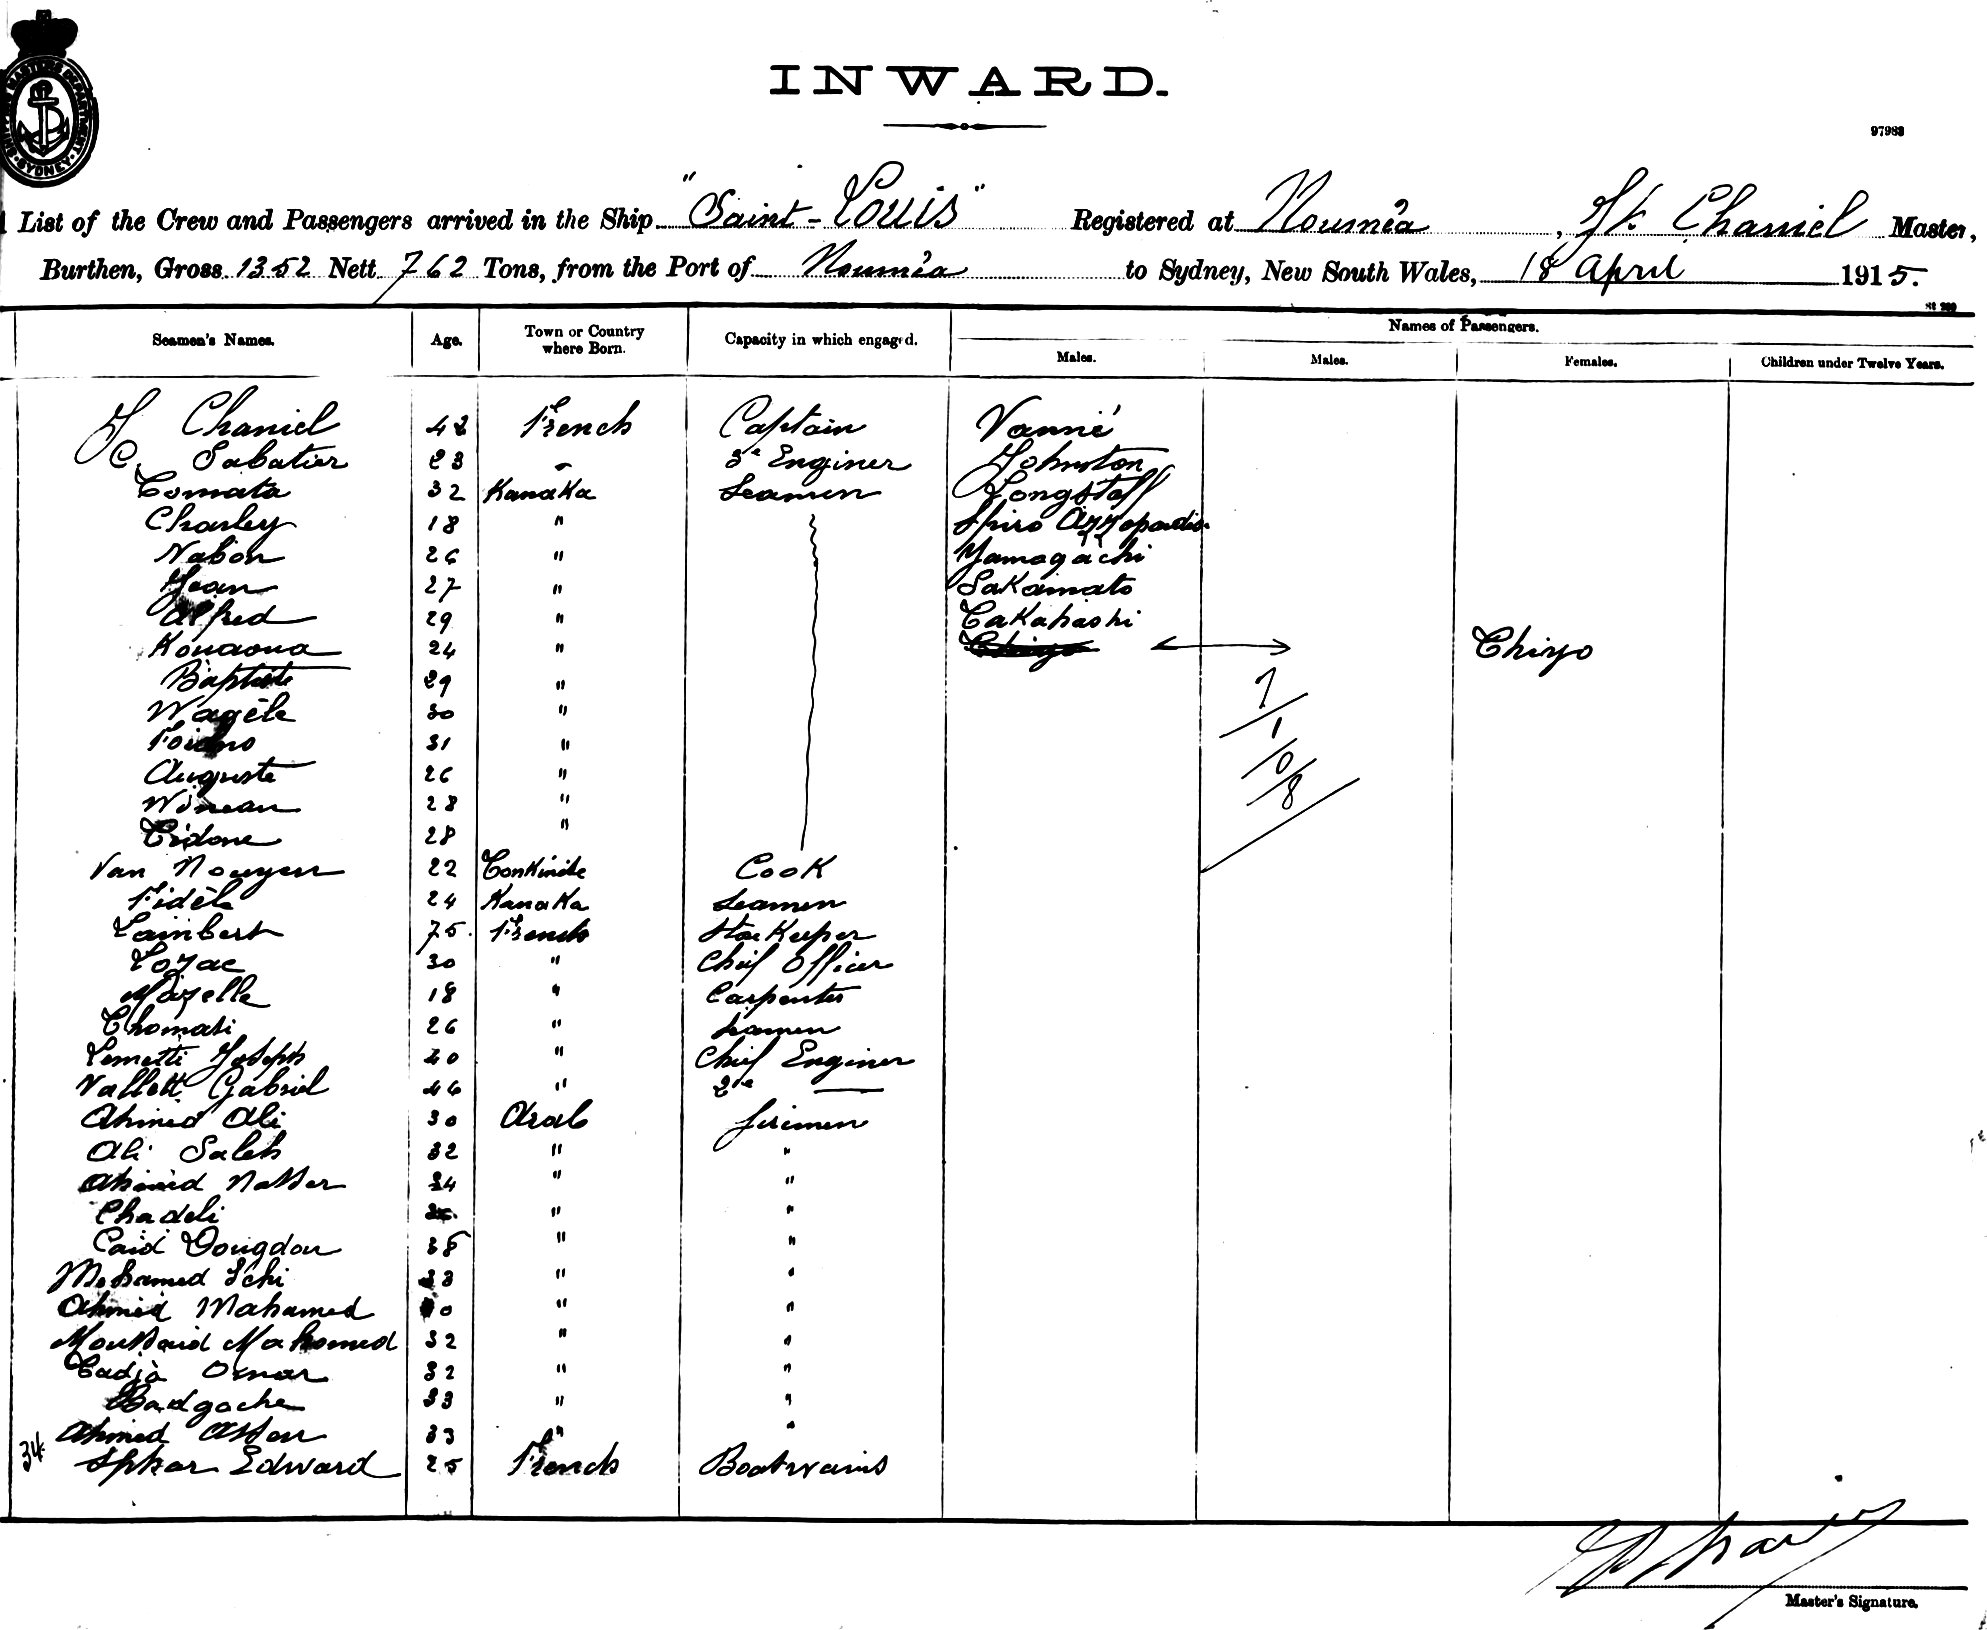 INWARD.
97983
List of the Crew and Passengers arrived in the Ship "Saint-Louis" Registered at Nouméa, Chaniel Master,
Burthen, Gross 1352 Nett 762 Tons, from the Port of Nouméa to Sydney, New South Wales, 18 April 1915.
Seamen's Names. Age. Town or Country where Born. Capacity in which engaged. Names of Passengers.
Males. Males. Females. Children under Twelve Years.
Chaniel 42 French Captain Vannié
C. Sabatier 23 " 3e Enginer Johnston
Tomata 32 Kanaka Seamen Longstaff
Charley 18 " Spiro Azzopardis
Nabon 26 " Yamagachi
Jean 27 " Sakamato
Alfred 29 " Takahashi
Kouaoua 24 " Chiyo
Baptiste 29 "
Wagèle 30 " 7
31 " 1
Auguste 26 " 0
Winean 28 " 8
Tidone 28 "
Van Nouyen 22 Tonkinite Cook
Fidèle 24 Kanaka Seamen
Lambert 75 French Store Keeper
Lozac 30 " Chief Officer
Mazelle 18 " Carpenter
Thomasi 26 " Seamen
Lemetti Joseph 40 " Chief Enginer
Vallett Gabriel 46 " 2me
Ahmed Ali 30 Arab firemen
Ali Saleh 32 " "
Ahmed Nasser 34 " "
Chadeli " "
Caid Dougdou 38 " "
Mohamed Schi 33 " "
Ahmed Mahamed " "
Moussaid Mahomed 32 " "
Cadja Omar 32 " "
Badgache 33 " "
Ahmed Assen 33 " "
34 Sphar Edward 25 French Boatswains
Master's Signature.